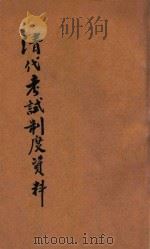 清代考試制度資料
www.mtoou.info